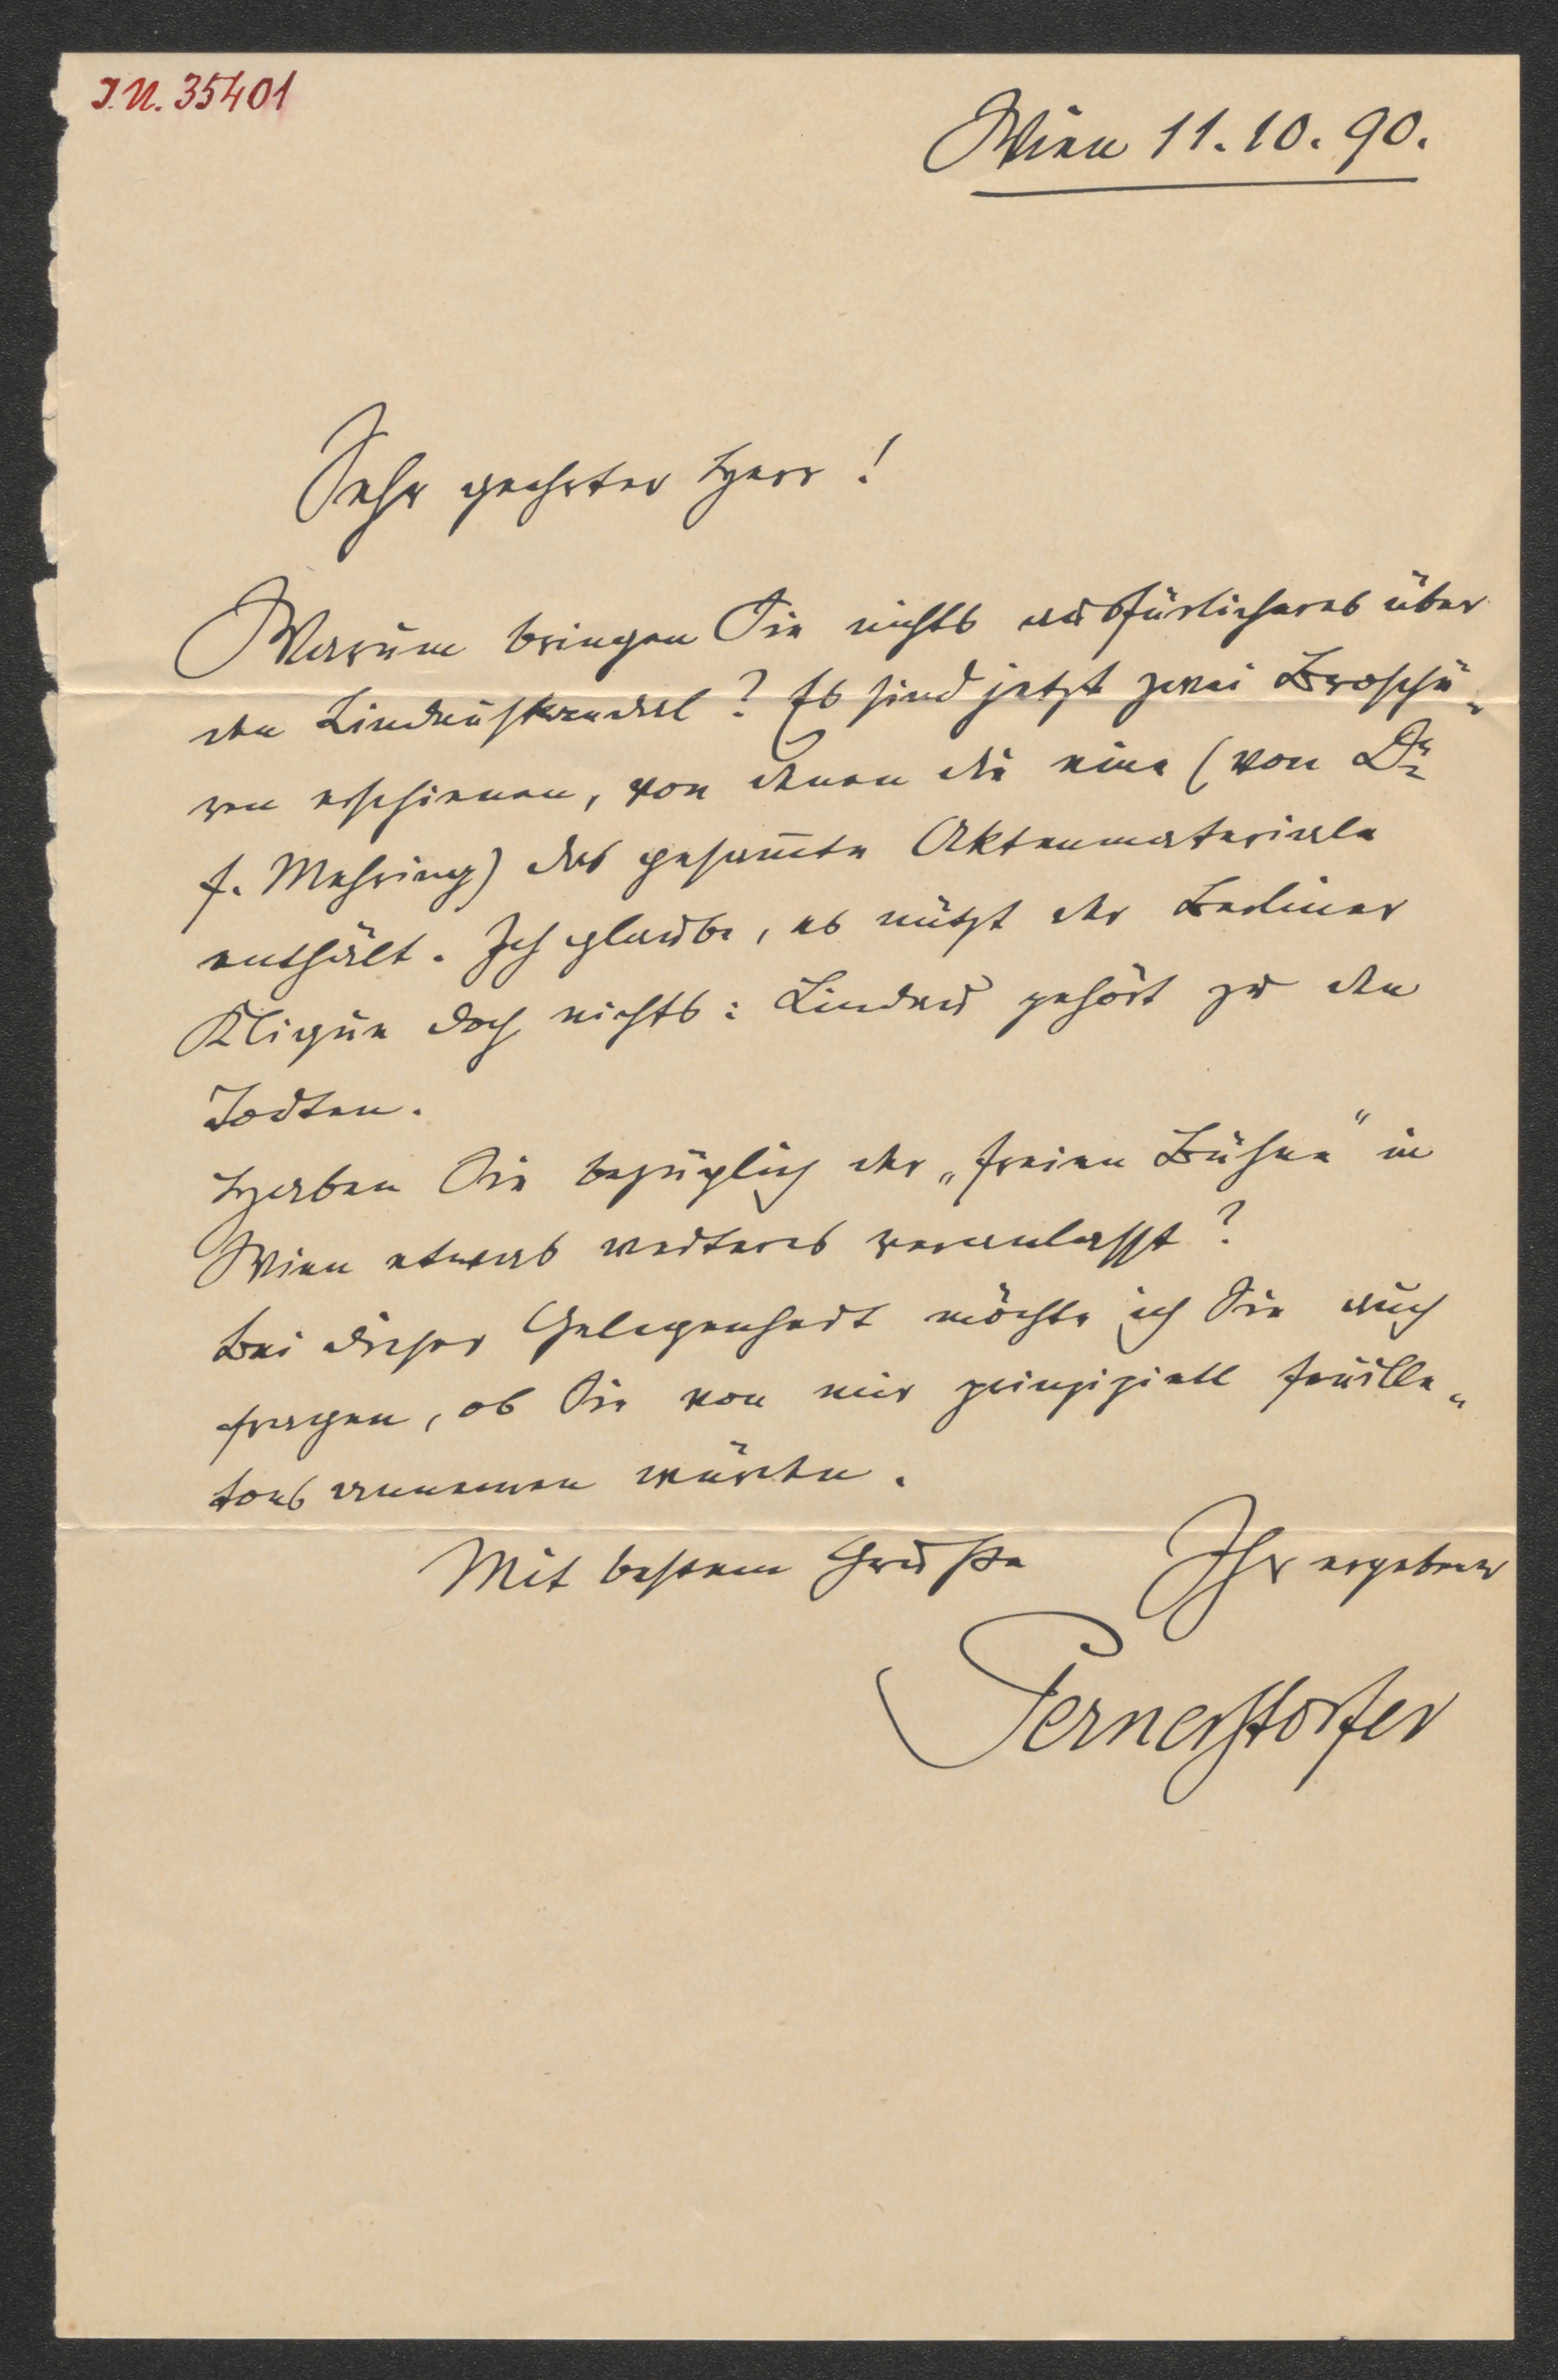 J.N. 35401
Wien 11.10.90.
Sehr geehrter Herr!
Warum bringen Sie nichts ausfürlicheres über
den Lindauskandal? Es sind jetzt zwei Broschü-
ren erschienen, von denen die eine (von Dr
F. Mehring) das gesam̅te Aktenmateriale
enthält. Ich glaube, es nützt der Berliner
Klique doch nichts: Lindau gehört zu den
Todten.
Haben Sie bezüglich der „freien Bühne“ in
Wien etwas weiteres veranlasst?
Bei dieser Gelegenheit möchte ich Sie auch
fragen, ob Sie von mir prinzipiell Feuille-
tons annemen würden.
Mit bestem Gruße Ihr ergebener
Pernerstorfer